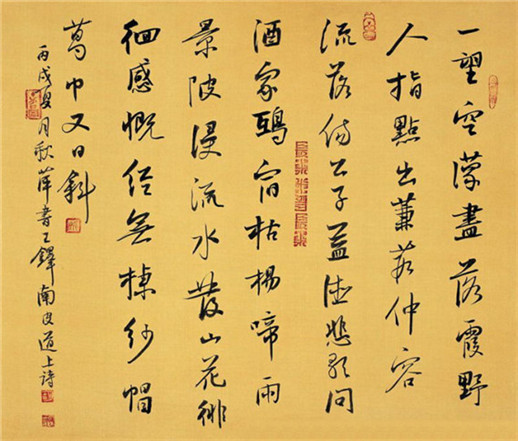 一望空濛盡落霞野
人指點出蒹葭仲容
流落傷公子孟德悲歌問
酒家鵶宿枯楊啼雨
景陂浸流水發山花徘
徊感慨經無棣紗帽
葛巾又日斜
丙戌夏月秋書王鐸南皮道上詩